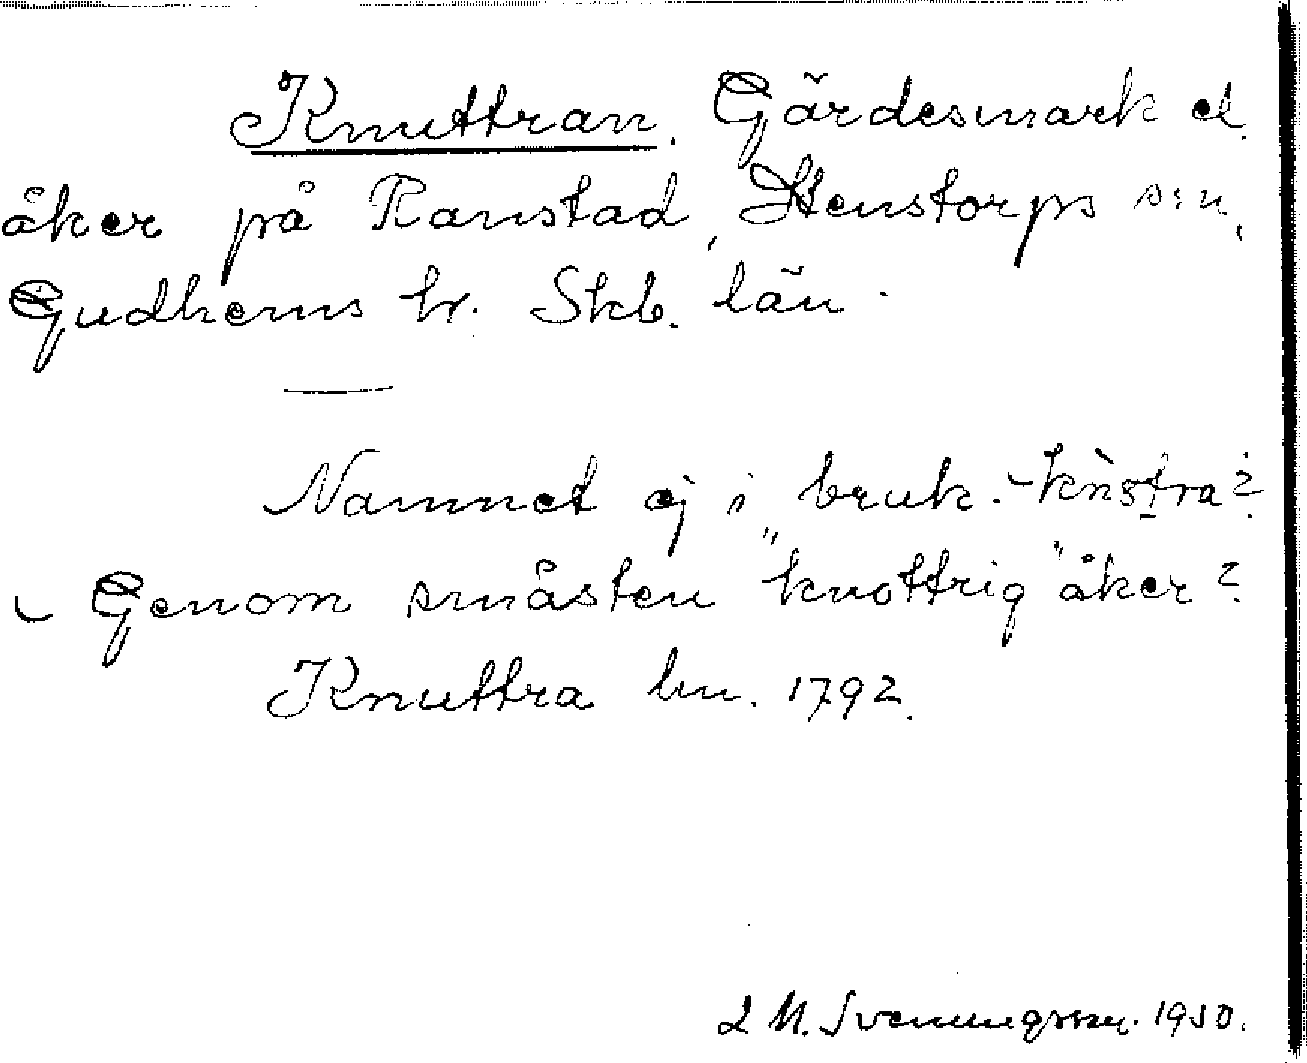 Knuttran. Gärdesmark el.
åker på Ranstad, Stenstorps sn,
Gudhems hr. Skb. län.
Namnet ej i bruk.
Genom småsten "knottrig" åker?
Knuttra lm. 1792.
L M. Svenungsson. 1930.